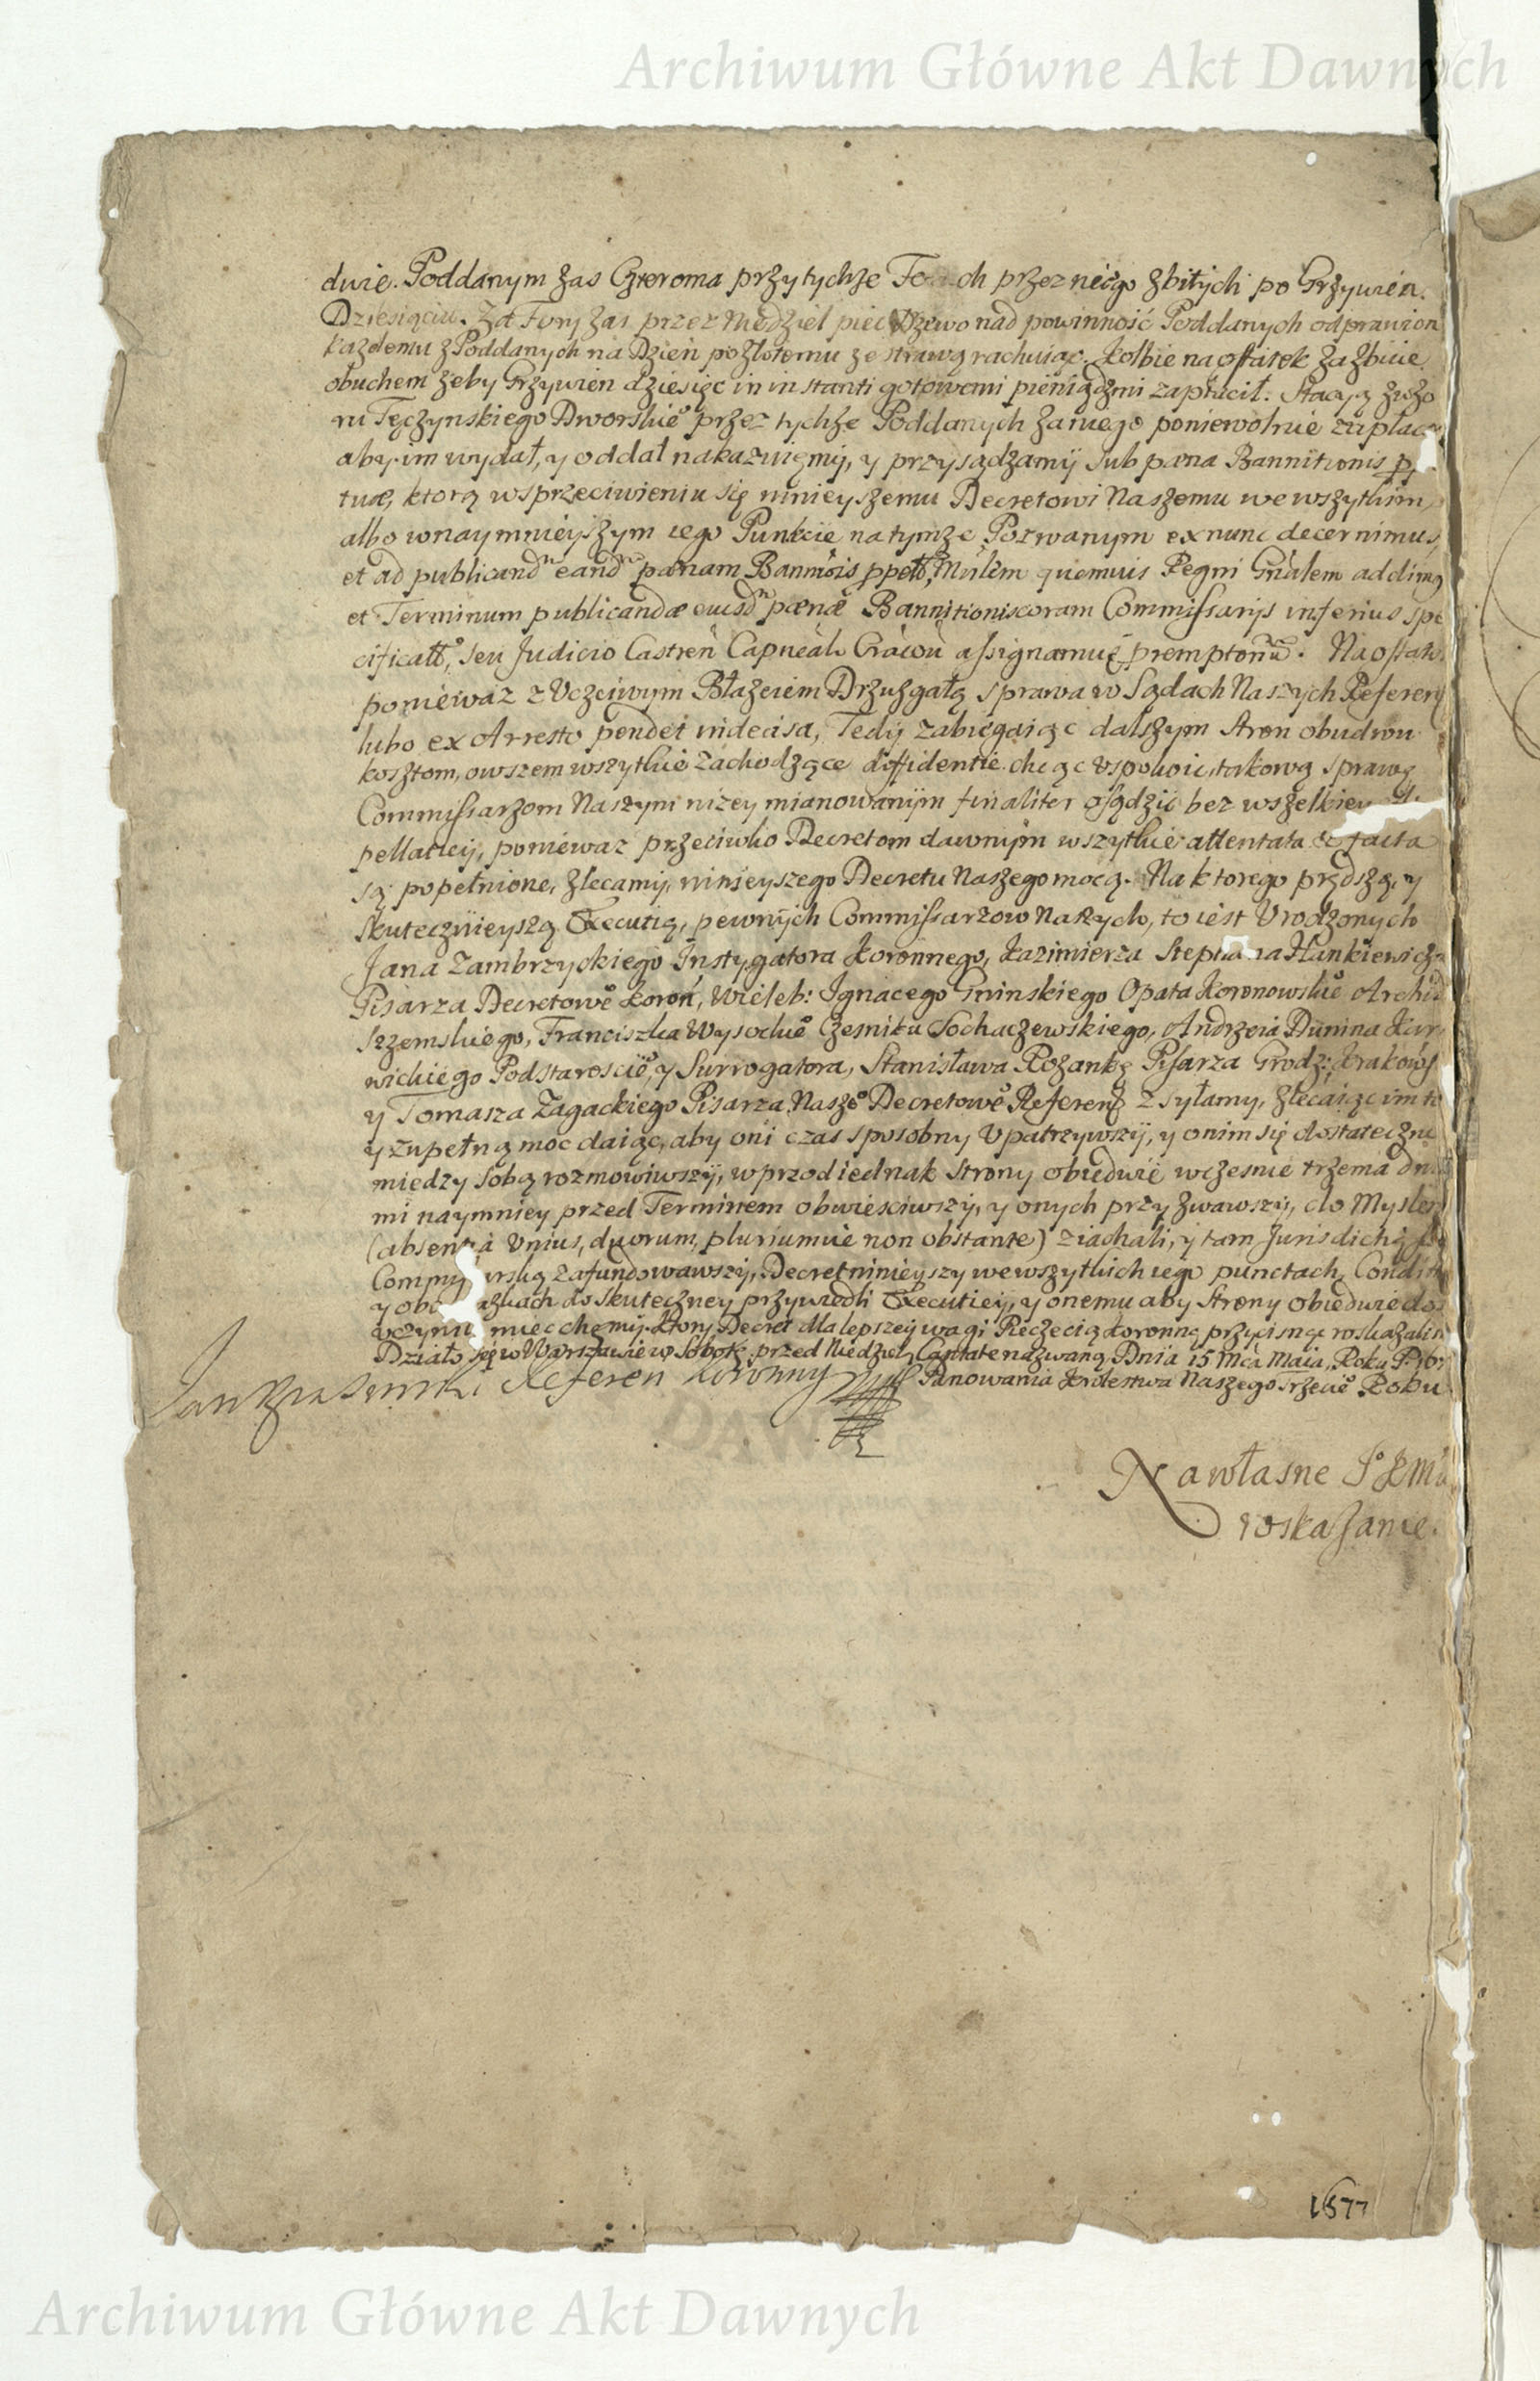 Archiwum Główne Akt Dawnych
dwie. Poddanym zas Czteroma przy tychże przez niego zbitych po Grzywien.
Dziesiąciu. Za Fury zas przez Niedziel pieć Drzewo nad powinność Poddanych odprawion
każdemu z Poddanych na Dzien po złotemu ze strawą rachuiąc. Kolbie na ostatek za zbicie
obuchem żeby Grzywien dziesięc in instanti gotowemi pieniądzmi zapłacił. Stacyą
ru Tęczynskiego Dworskie° przez tychże Poddanych za niego poniewolnie zapłac
aby im wydał, y oddał nakazuięmy, y przysądzamy sub pæna Bannitionis
tuæ, ktorą w sprzeciwieniu się ninieyszemu Decretowi Naszemu we wszytkim,
albo w naymnieyszym iego Punkcie na tymże Pozwanym ex nunc decernimus,
et ad publicand eand pænam Bannōis ppet, Mūlem quemuis Regni Gnālem addim
et Terminum publicandæ eiusd pænæ Bannitionis coram Commissarijs inferius spe
cificat, seu Judicio Castreń Capneāli Cracoū assignamus premptoriū. Na ostat
poniewaz z Uczciwym Błazeiem Drzuzgałą sprawa w Sądach Naszych Referen
lubo ex Arresto pendet indecisa, Tedy zabiegaiąc dalszym stron obudwu
kosztom, owszem wszytkie zachodzące diffidentie chcąc uspokoic, takową sprawę
Commissarzom Naszym nizey mianowanym finaliter osądzić bez wszelkiey
pellatiey, poniewaz przeciwko Decretom dawnym wszytkie attentata & facta
są popełnione, zlecamy, ninieyszego Decretu Naszego mocą. Na ktorego prędszą, y
skutecznieyszą Executią, pewnych Commissarzow Naszych, to iest Urodzonych
Jana Zambrzyckiego Instygatora Koronnego, Kazimierza Stephana Hankiewicza
Pisarza Decretowe° Koroń, Wieleb: Ignacego Gninskiego Opata Koronowskie° Archid
Franciszka Wysockie° Czesnika Sochaczewskiego, Andrzeia Dunina Kar
wickiego Podstaroscie°, y Surrogatora, Stanisława Rozankę Pisarza Grodz: Krakows
y Tomasza Zagackiego Pisarza Nasze° Decretowe° Referen zsyłamy, zlecaiąc im to
y zupełną moc daiąc, aby oni czas sposobny upatrzywszy, y o nim się dostateczni
miedzy sobą rozmowiwszy, wprzod iednak strony obiedwie wczesnie trzema dni
mi naymniey przed Terminem obwiesciwszy, y onych przyzwawszy, do Myslen
(absentia unius, duorum, pluriumue non obstante) ziachali, y tam Jurisdictią
zafundowawszy, Decret ninieyszy we wszytkich iego punctach, Condit
y do skuteczney przywiedli Executiey, y onemu aby strony obiedwie dos
miec chcemy. Ktory Decret dla lepszey wagi Pieczęcią Koronną przycisnąc roskazalis
Działo się w Warszawie w Sobotę przed Niedzielą Cantate nazwaną Dnia 15 Mca Maia, Roku P. 16
Panowania Krolestwa Naszego Trzecie° Roku
Referen Koronny
Na własne J° K Mci
roskazanie.
1577
Archiwum Główne Akt Dawnych